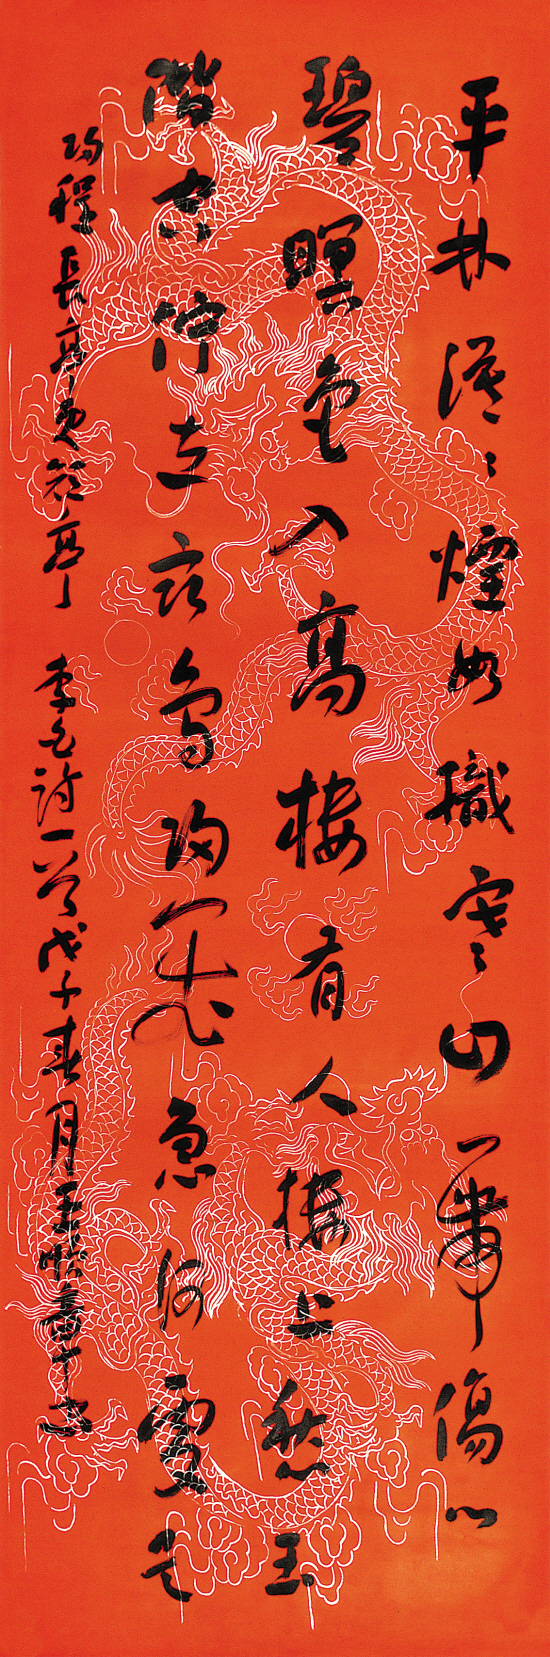 平林漠々煙如織寒山一帶傷心
碧暝色入高樓有人樓上愁玉
階空佇立宿鳥歸飛急何處是
歸程長亭更短亭 李白詩一首戊子春月王